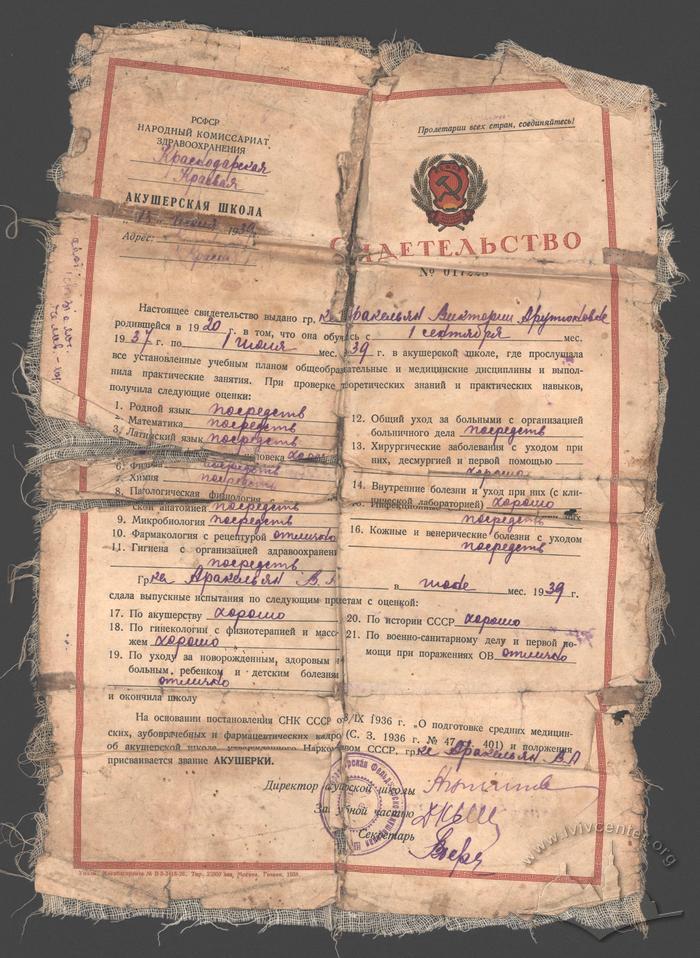 РСФСР
НАРОДНЫЙ КОМИССАРИАТ
ЗДРАВООХРАНЕНИЯ
Краснодарская
Краевая
АКУШЕРСКАЯ ШКОЛА
1939
Адрес:
Пролетарии всех стран, соединяйтесь!
СВИДЕТЕЛЬСТВО
№ 017228
Настоящее свидетельство выдано гр. ке Аракельян Виктории Арутюновне
родившейся в 1920 г. в том, что она обу сь с 1 сентября мес.
1937 г. по 1 июля мес. 39 г. в акушерской школе, где прослушала
все установленные учебным планом общеобразовательные и медицинские дисциплины и выпол-
нила практические занятия. При проверке теоретических знаний и практических навыков,
получила следующие оценки:
1. Родной язык посредств
2. Математика посредств
3. Латинский язык посредств
человека
6. Физика посредств
7. Химия посредств
8. Патологическая физиология
ской анатомией посредств
9. Микробиология посредств
10. Фармакология с рецептурой отлично
11. Гигиена с организацией здравоохранени
посредств
12. Общий уход за больными с организацией
больничного дела посредств
13. Хирургические заболевания с уходом при
них, десмургией и первой помощью
хорошо
14. Внутренние болезни и уход при них (с кли-
нической лабораторией) хорошо
посредств
16. Кожные и венерические болезни с уходом
посредств
Гр. ке Аракельян В. А в июле мес. 1939 г.
сдала выпускные испытания по следующим предметам с оценкой:
17. По акушерству хорошо
18. По гинекологии с физиотерапией и масс-
жем хорошо
19. По уходу за новорожденным, здоровым и
больным ребенком и детским болезня
отлично
20. По истории СССР хорошо
21. По военно-санитарному делу и первой по-
мощи при поражениях ОВ отлично
и окончила школу
На основании постановления СНК СССР от 8/IX 1936 г. „О подготовке средних медицин-
ских, зубоврачебных и фармацевтических кадров (С. З. 1936 г. № 47 401) и положения
об акушерской школе, утвержденного Наркомом СССР, гр. ке Аракельян В. А
присваивается звание АКУШЕРКИ.
Директор акушерской школы
За учебной частью
Секретарь
www.lvivcenter.org